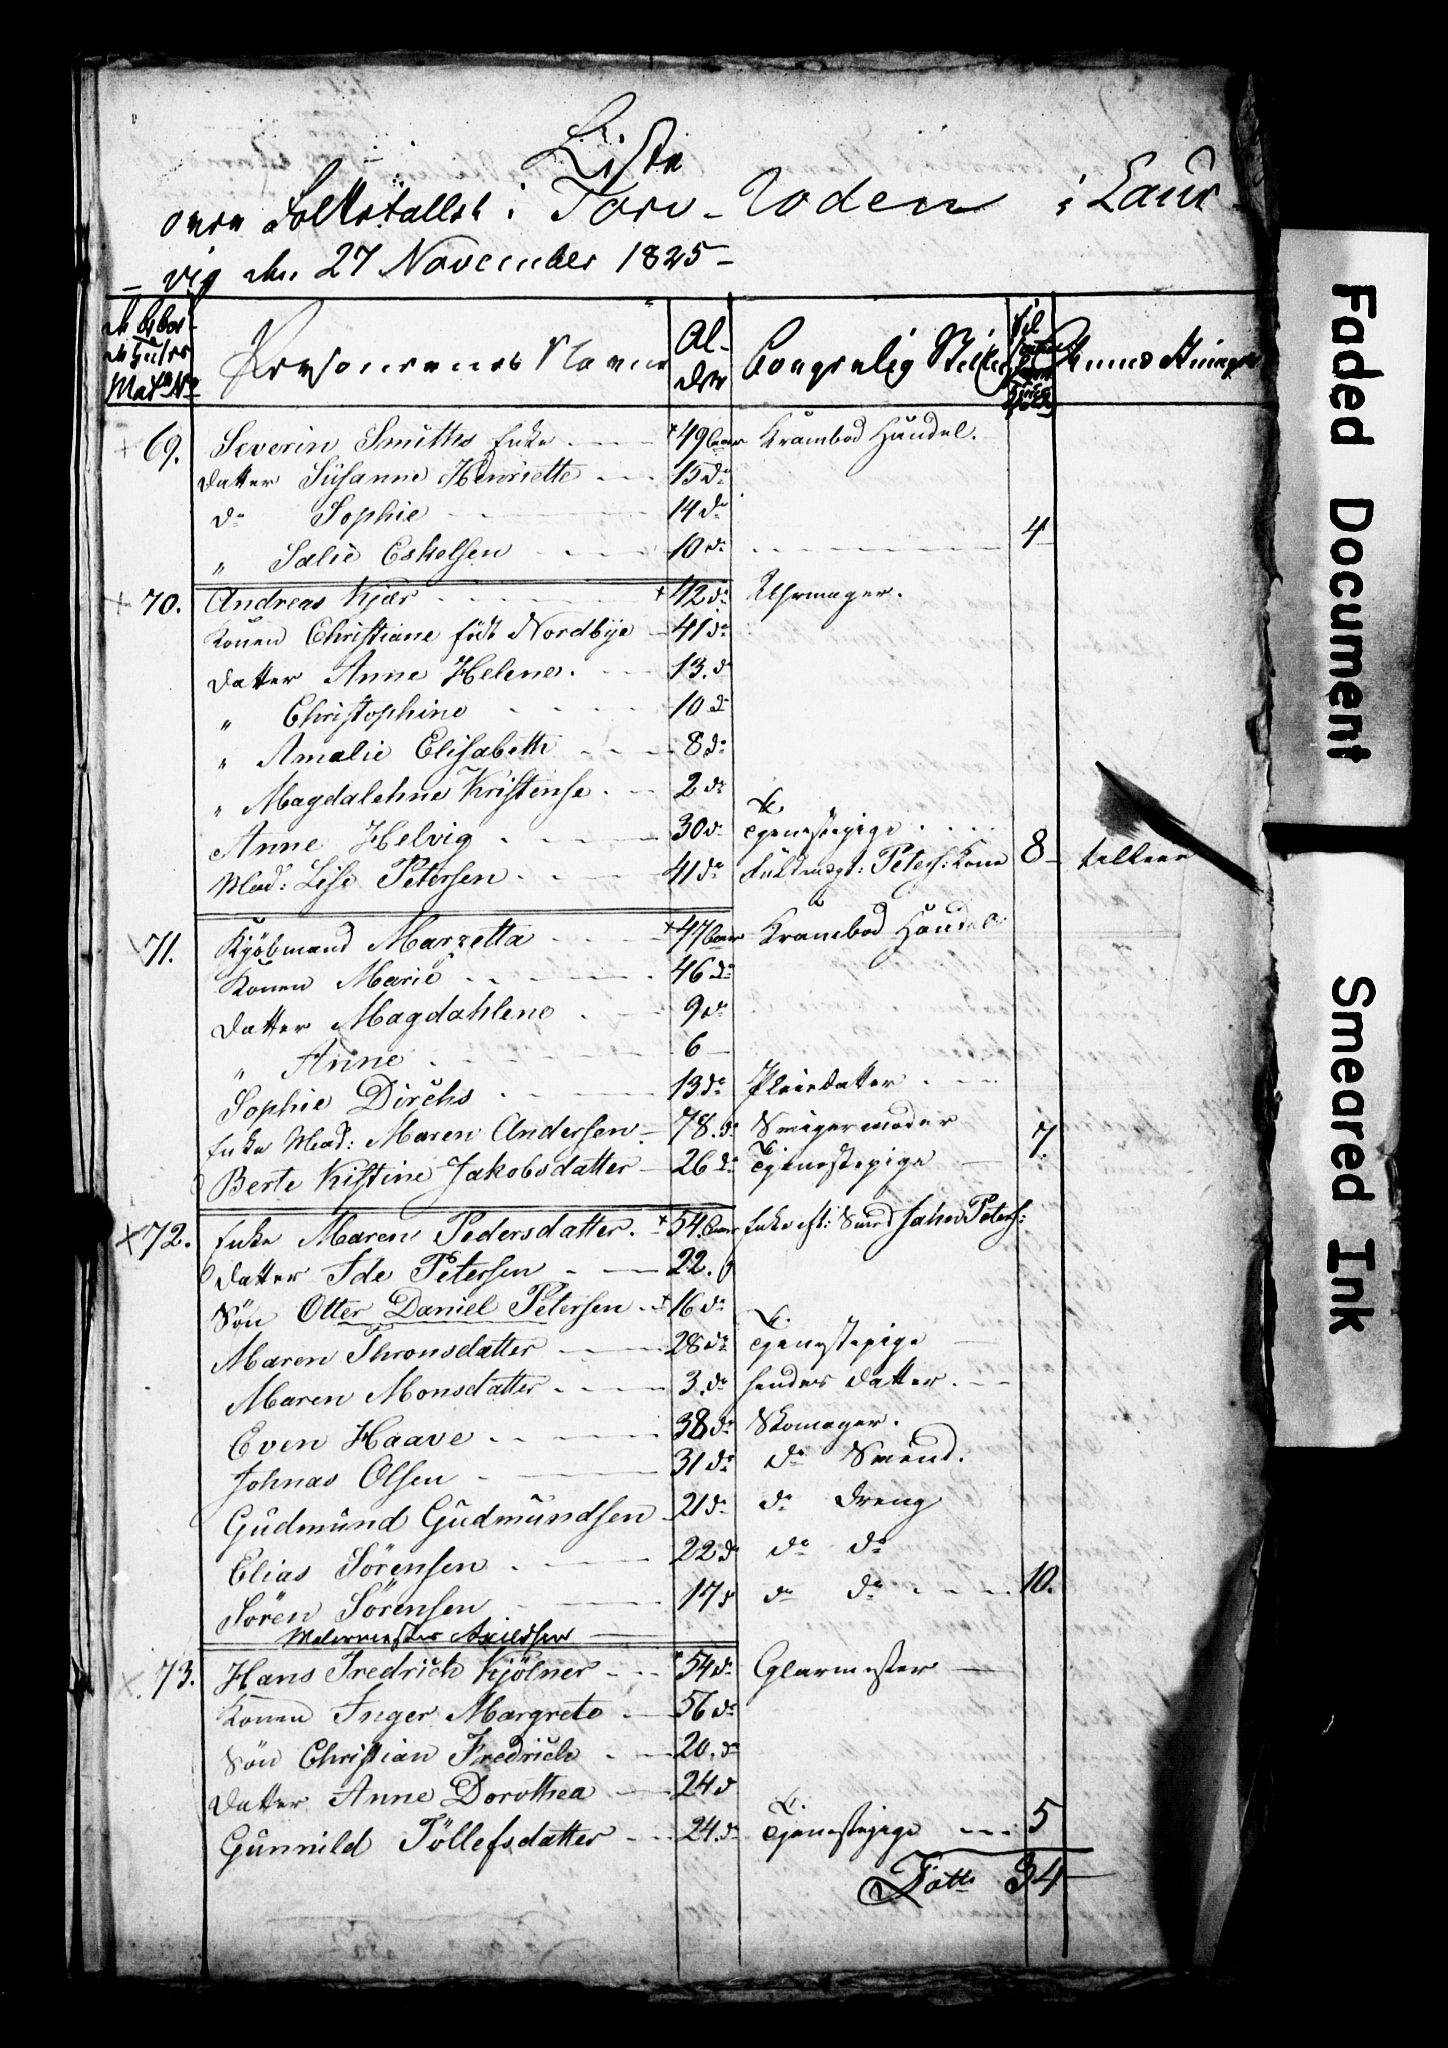 Liste
over Folketallet i Torv-Roden i Laur-
vig den 27 November 1825
Matr No Personernes Navne Al-der Borgerlig Stilling Anmærkninger
69. Severin Smiths Enke 49 aar Krambod Handel.
datter Susanne Henriette 15 do
do Sophie 14 do
" Salie Eskelsen 10 do 4
70. Andreas Kjær 42 do Uhrmager.
Konen Christiane født Nordbye 41 do
datter Anne Helene. 13. do
" Christophine 10 do
" Amalie Elisabeth 8 do
" Magdalehne Kristense 2 do
Anne Helvig 30 do Tjenestepige
Mad: Lise Petersen 41 do fuldmægt: Peters: Kone 8
71. Kjöbmand Marzetta 47 aar Krambod Handel
Konen Marie 46 do
datter Magdahlene 9 do
" Anne 6
Sophie Dirchs 13 do Pleiedatter
Enke Mad: Maren Andersen 78. do Svigermoder
Berte Kistine Jakobsdatter 26 do Tjenestepige 7.
72. Enke Maren Pedersdatter. 54. aar Enke eft: Peters:
datter Ide Petersen 22.
Sön Otter Daniel Petersen 16 do
Maren Thronsdatter 28 do Tjenestepige
Maren Monsdatter 3. do hendes datter.
Even Haave 38 do Skomager.
Johnas Olsen 31 do do Svend.
Gudmund Gudmundsen 21 do do dreng
Elias Sörensen 22 do do do
Sören Sörensen 17 do do do 10.
73. Hans Fredrich Kjölner 54 do Glarmester
Konen Inger Margrete 56 do
Sön Christian Fredrich 20. do
datter Anne Dorothea 24 do
Gunnild Töllefsdatter 24. do Tjenestepige 5
34
Faded Document
Smeared Ink